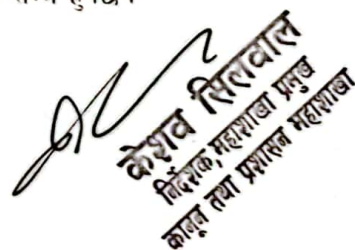 केशव सिलवाल
निर्देशक, महाशाखा प्रमुख
कानून तथा प्रशासन महाशाखा